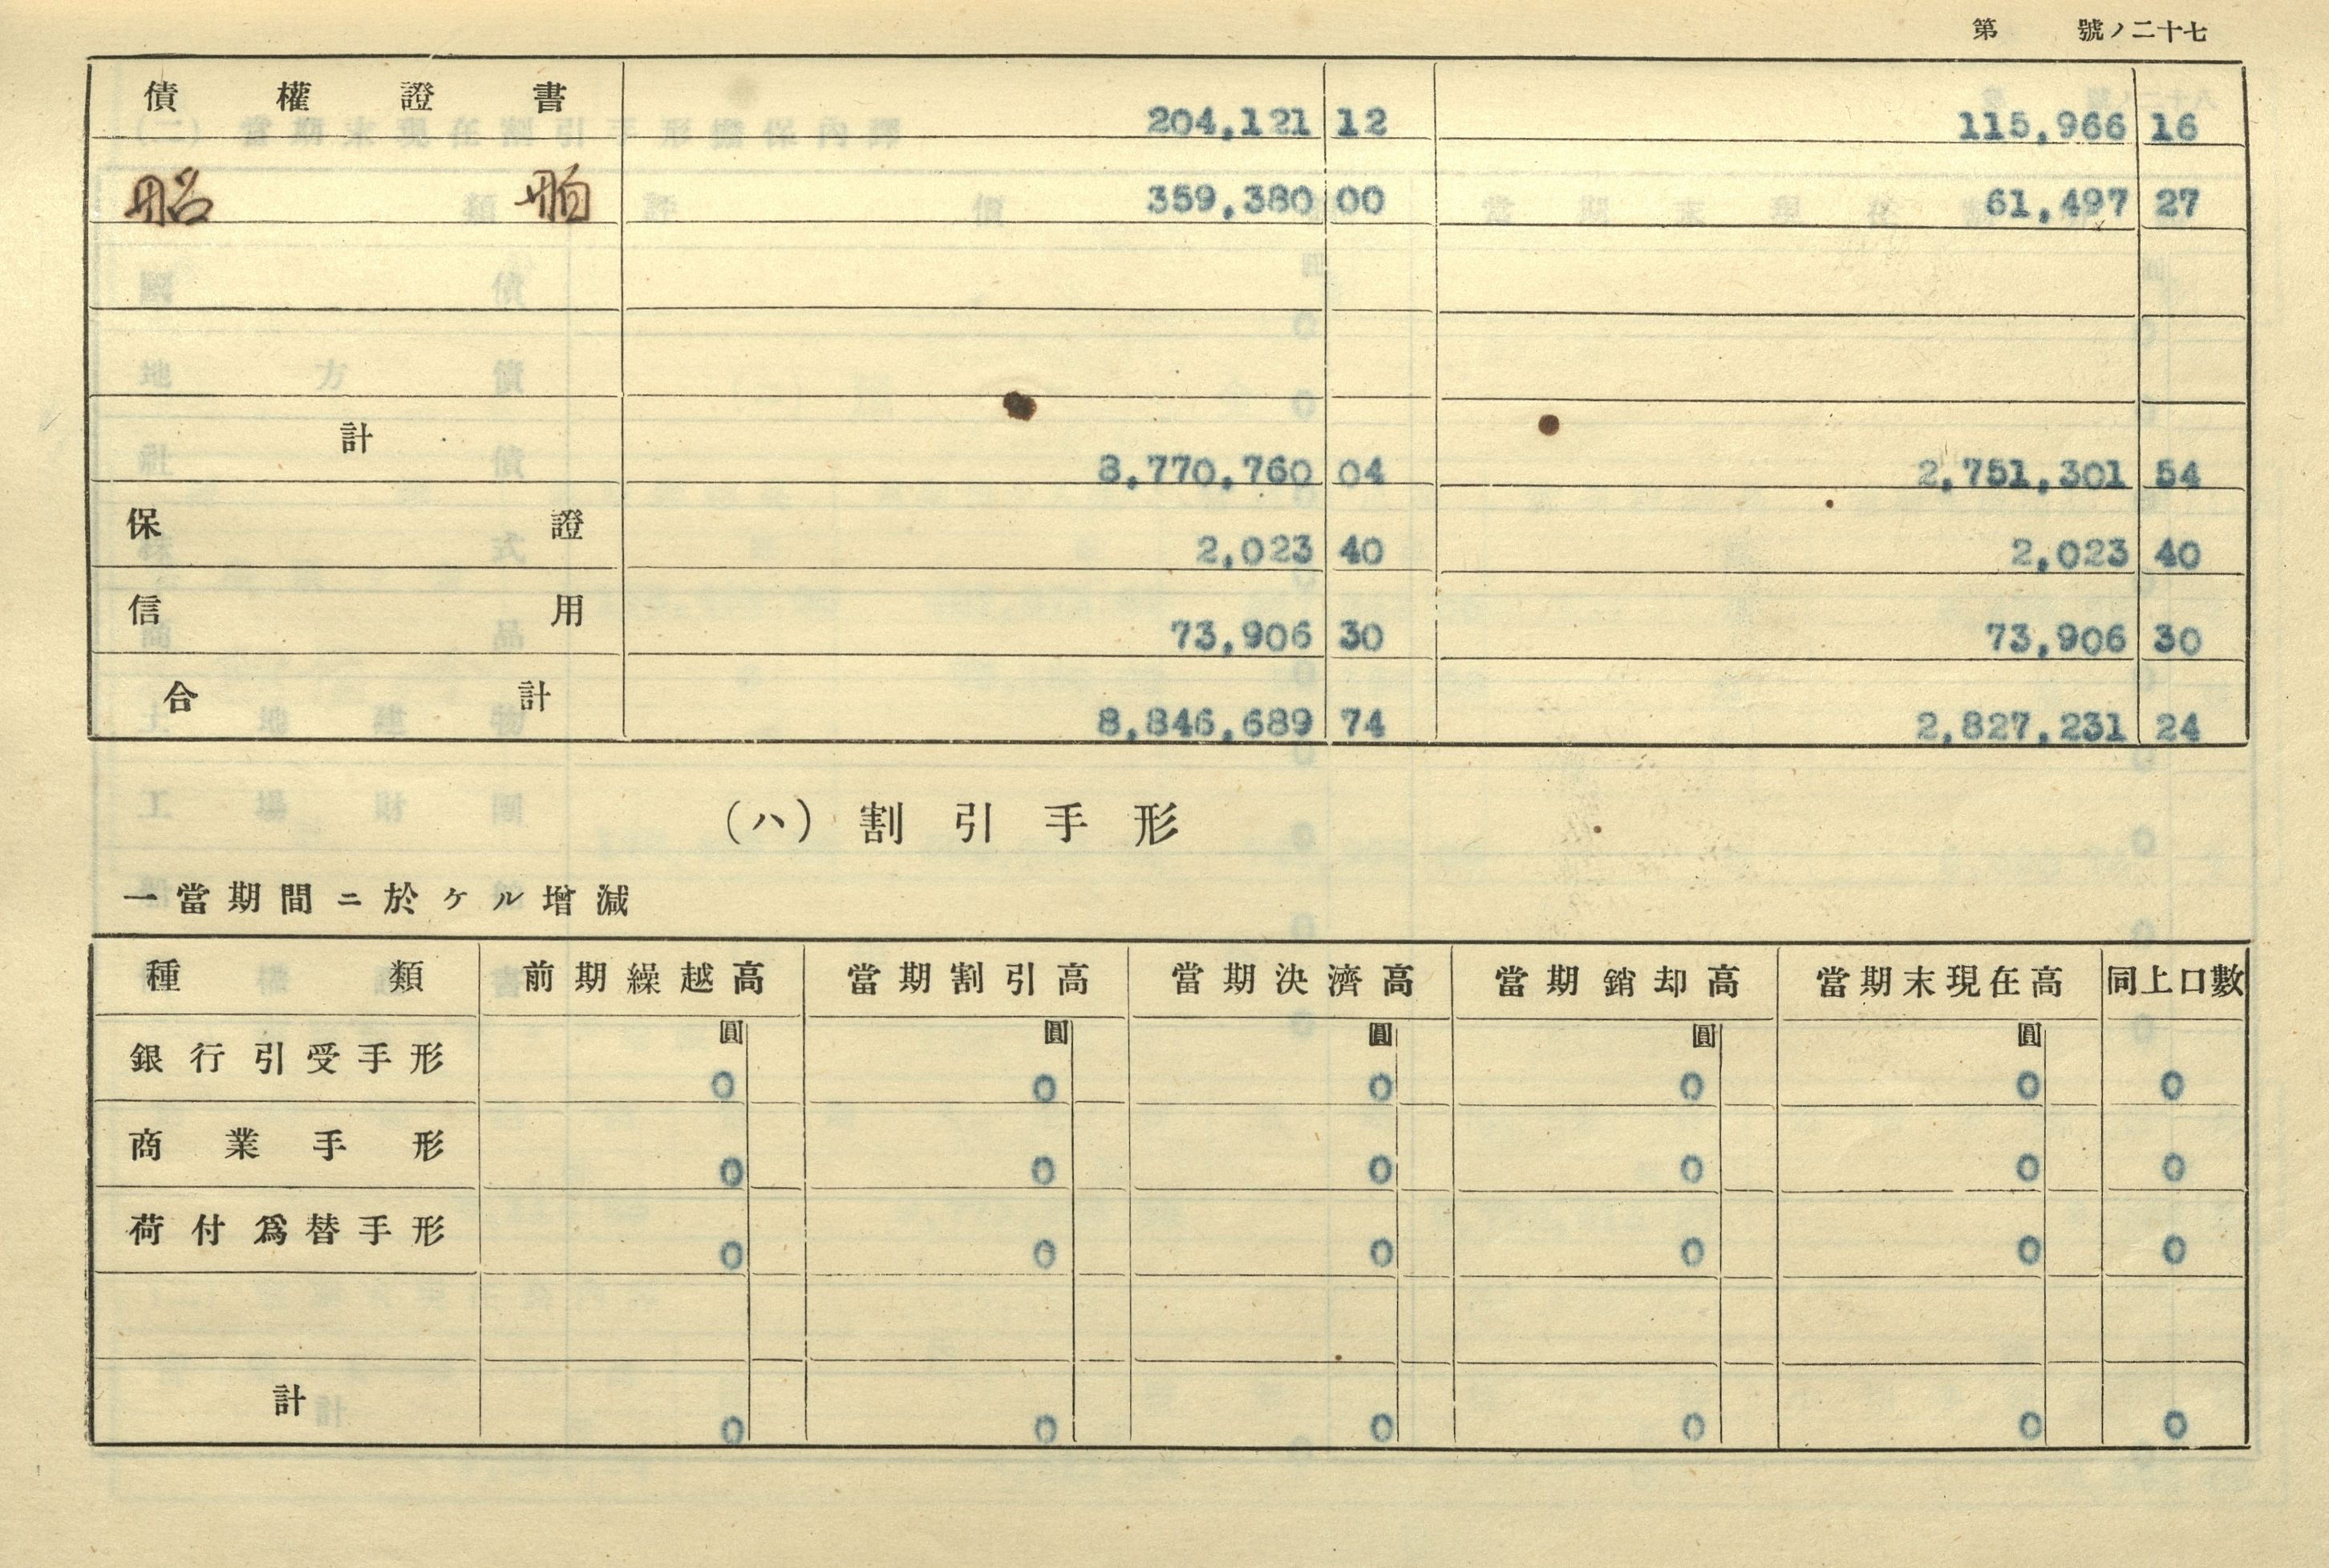 第 號ノ二十七
債權證書 204,121 12 115,966 16
船舶 359,380 00 61,497 27
計 8,770,760 04 2,751,301 54
保證 2,023 40 2,023 40
信用 73,906 30 73,906 30
合計 8,846,689 74 2,827,231 24
(ハ) 割引手形
一當期間ニ於ケル増減
種類 前期繰越高 當期割引高 當期決濟高 當期銷却高 當期末現在高 同上口數
圓 圓 圓 圓 圓
銀行引受手形 0 0 0 0 0 0
商業手形 0 0 0 0 0 0
荷付爲替手形 0 0 0 0 0 0
計 0 0 0 0 0 0